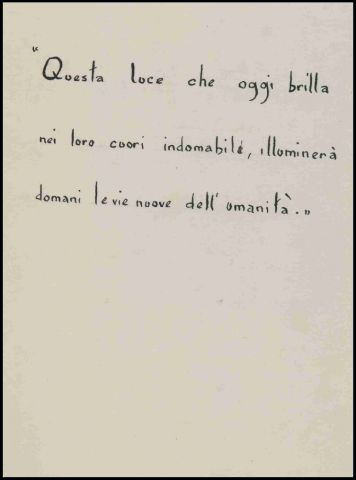 “Questa luce che oggi brilla
nei loro cuori indomabile, illuminerà
domani le vie nuove dell'umanità.„